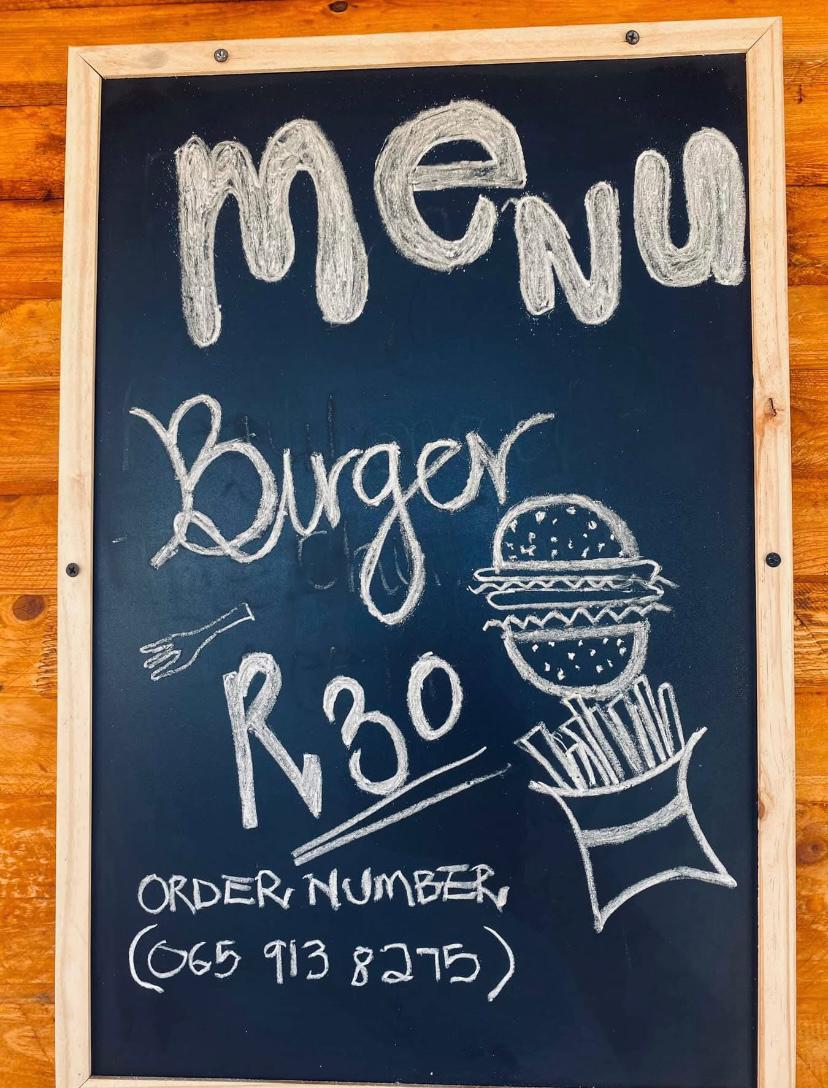 menu
Burger
R30
ORDER NUMBER
(065 913 8275)